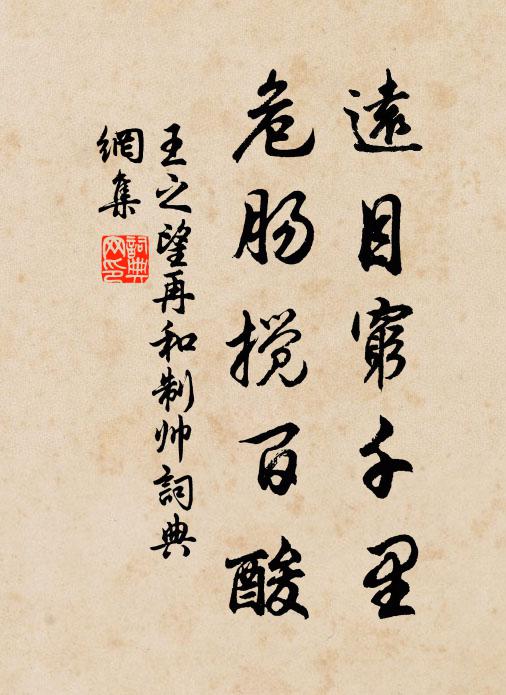 遠目窮千里
危肠搅百酸
王之望再和制帅詞典
網集
詞典网印